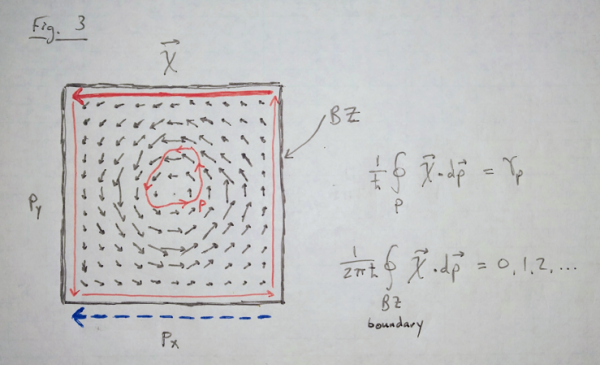 Fig. 3
𝜒⃗
BZ
P_y
P
1/ħ ∮_P 𝜒⃗ · dp⃗ = γ_p
1/2πħ ∮_BZ boundary 𝜒⃗ · dp⃗ = 0, 1, 2, ...
P_x